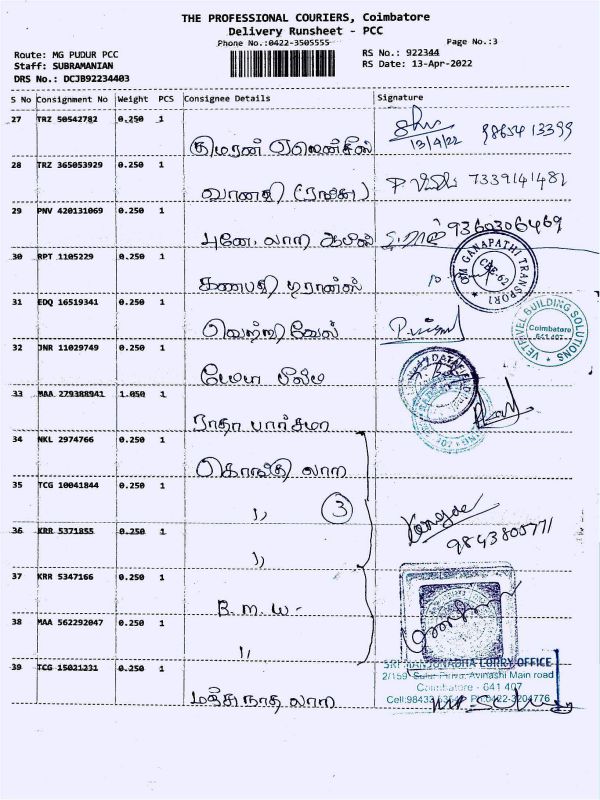 THE PROFESSIONAL COURIERS, Coimbatore
Delivery Runsheet - PCC
Phone No.:0422-3505555 Page No.:3
Route: MG PUDUR PCC RS No.: 922344
Staff: SUBRAMANIAN RS Date: 13-Apr-2022
DRS No.: DCJB92234403
S No Consignment No Weight PCS Consignee Details Signature
27 TRZ 50542782 0.250 1
குமரன் ஏஜென்சீஸ் 13/4/22
28 TRZ 365053929 0.250 1
வானதி 7339141481
29 PNV 420131069 0.250 1
புனே லாரி ஆபிஸ் 9360306469
30 RPT 1105229 0.250 1
கணபதி டிரான்ஸ் OM GANAPATHI TRANSPORT CBE-62
31 EDQ 16519341 0.250 1
வெற்றி வேல் VETRIVEL BUILDING SOLUTIONS Coimbatore 641 407
32 JNR 11029749 0.250 1
33 MAA 279388941 1.050 1
ராதா பார்சல்
34 NKL 2974766 0.250 1
லாரி
35 TCG 10041844 0.250 1
,, 3
36 KRR 5371855 0.250 1
,, 9843805771
37 KRR 5347166 0.250 1
B.M.W-
38 MAA 562292047 0.250 1
,,
39 TCG 15021231 0.250 1
மஞ்சுநாத லாரி
SRI MANJUNADHA LORRY OFFICE
2/159 Avinashi Main road
Coimbatore - 641 407
Cell:98433 Ph:0422-3204776